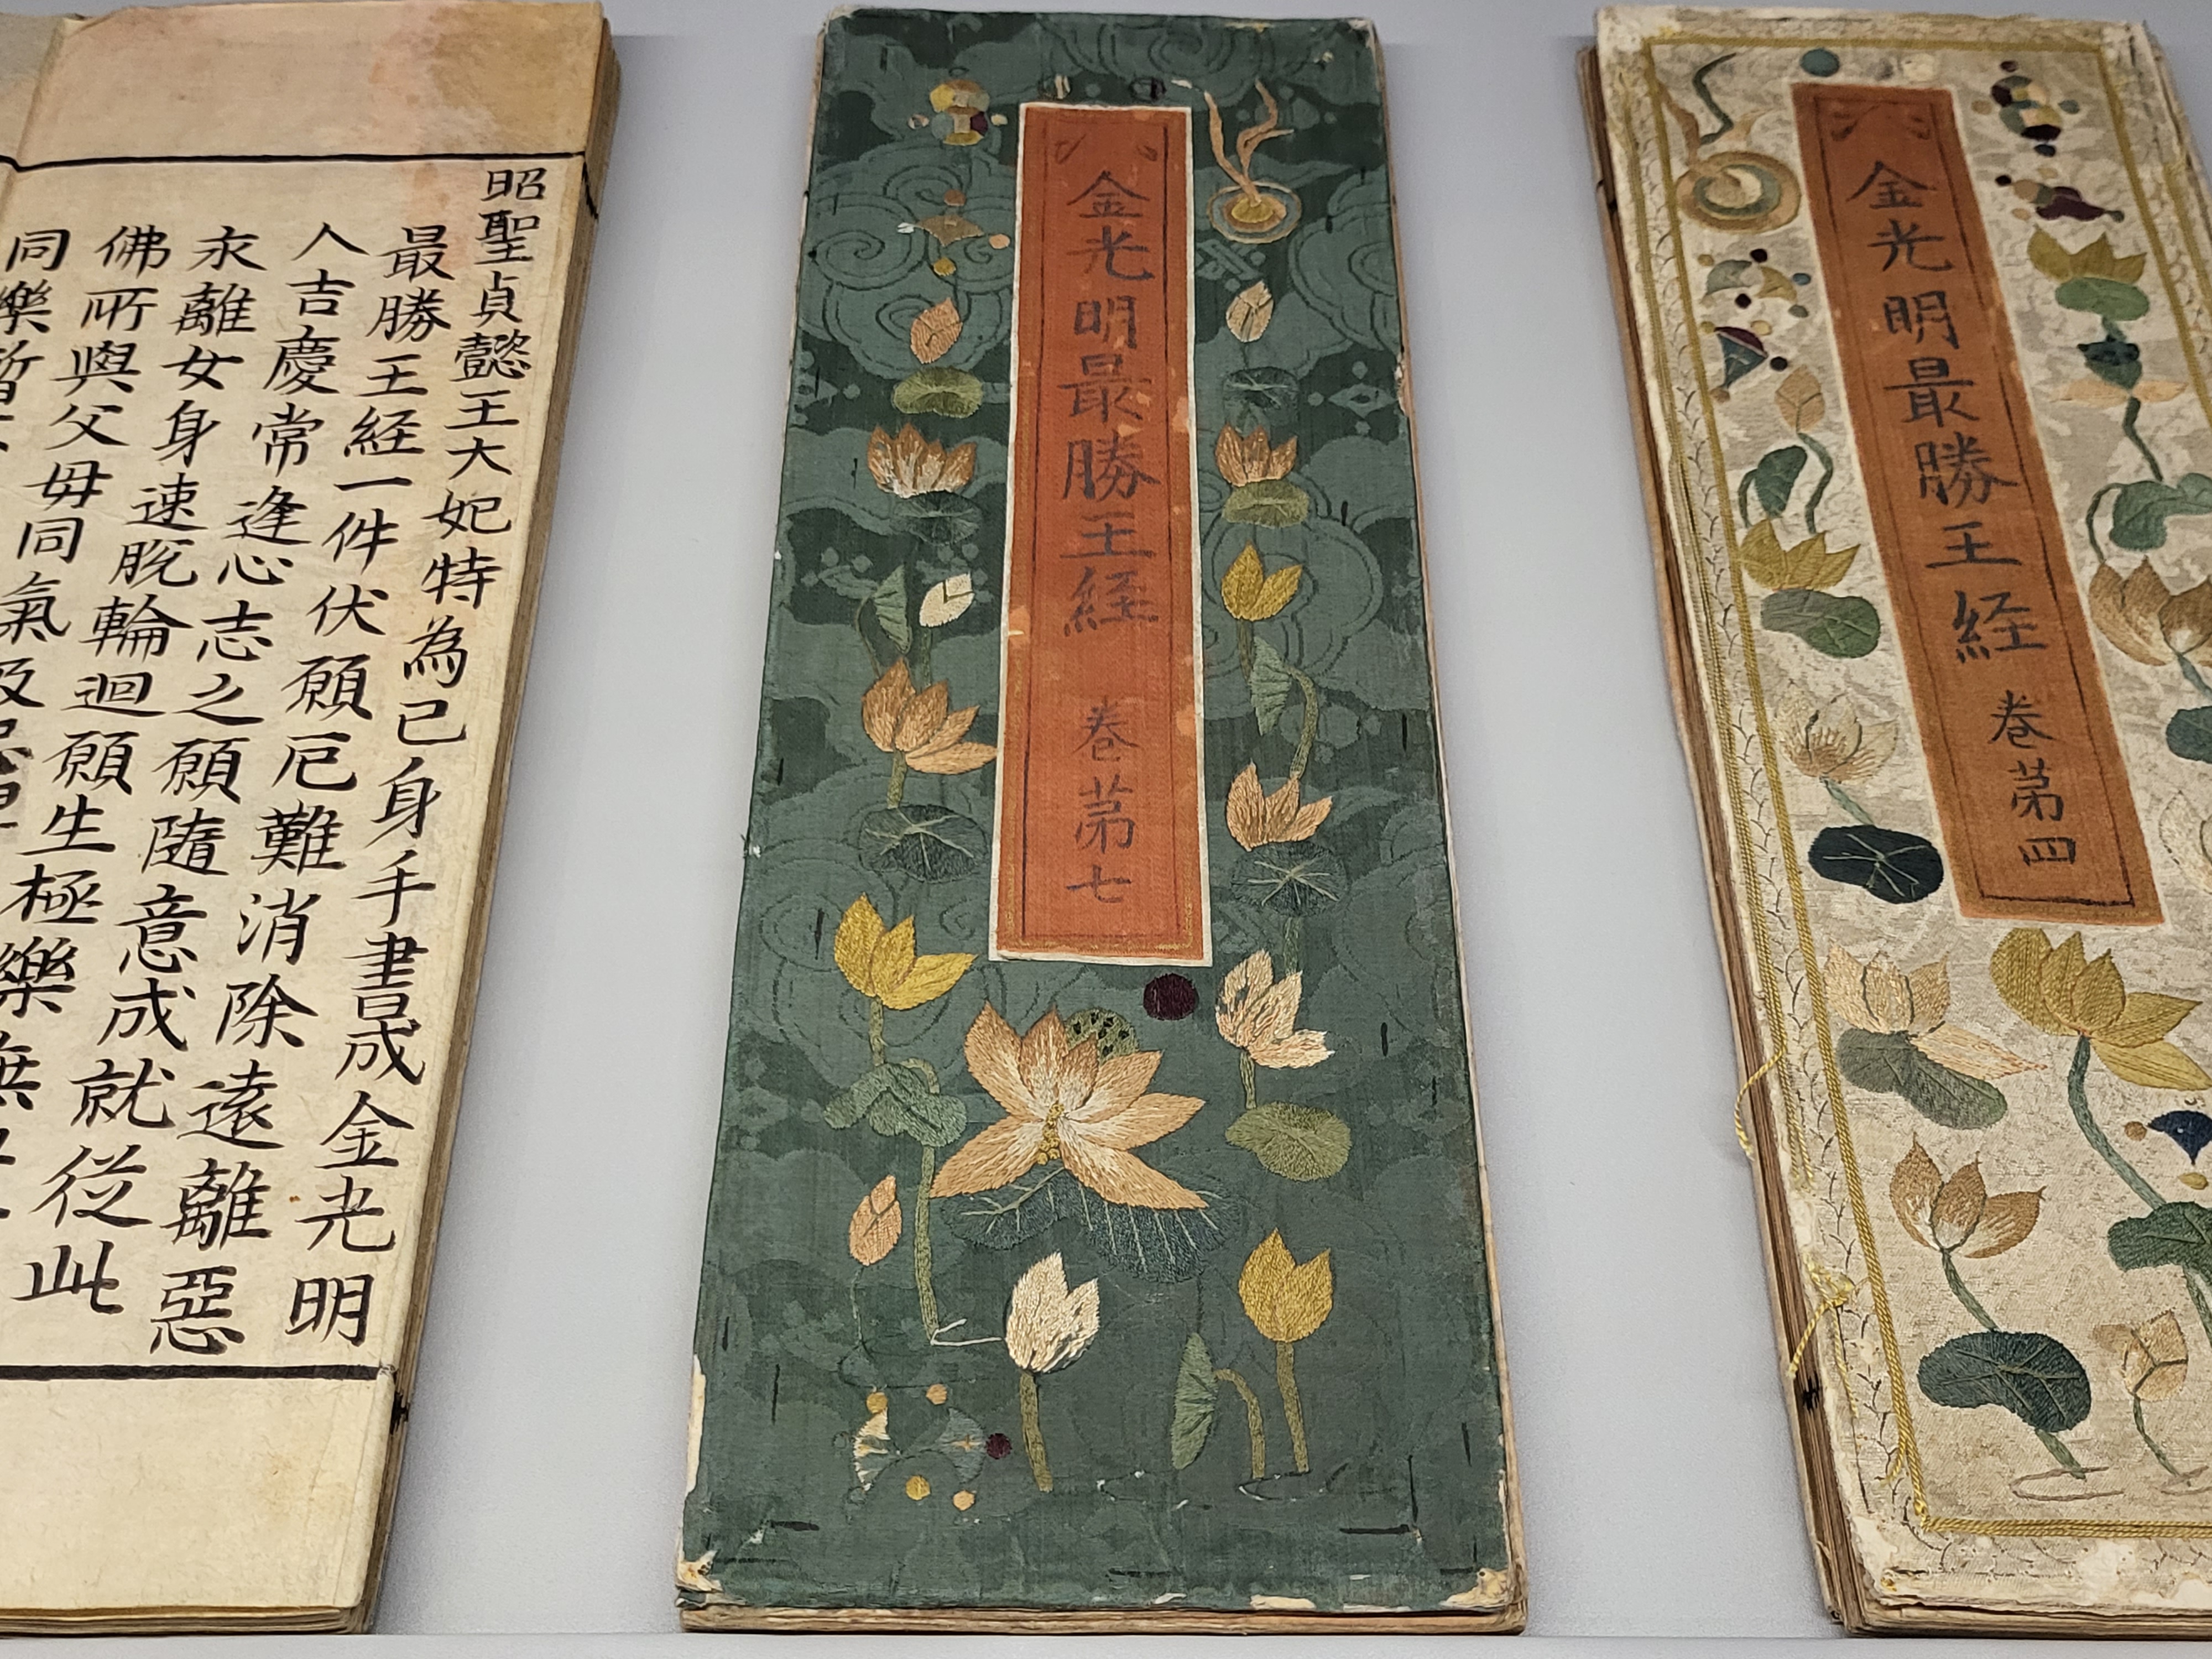 昭聖貞懿王大妃特為己身手書成金光明
最勝王経一件伏願厄難消除遠離惡
人吉慶常逢心志之願隨意成就從此
永離女身速脫輪迴願生極樂無
佛所與父母同氣及
同樂
金光明最勝王経 卷苐七
金光明最勝王経 卷苐四